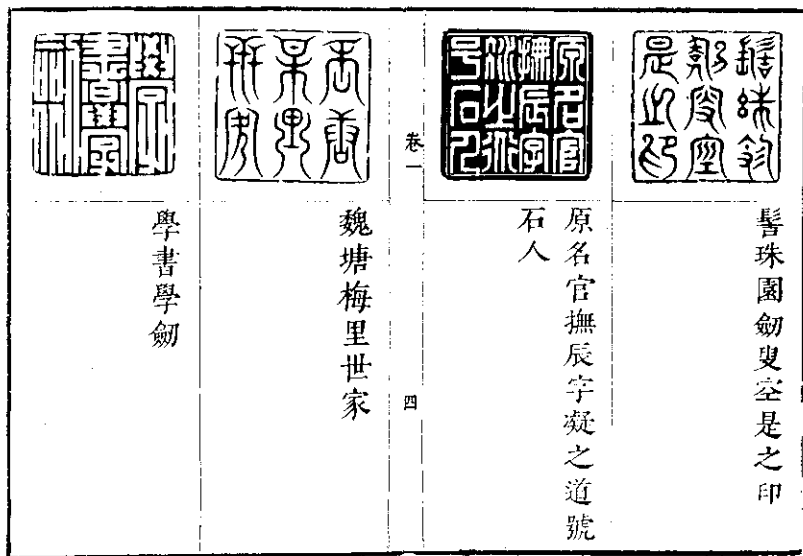 髻珠園劒叟空是之印
原名官撫辰字凝之道號
石人
卷一
四
魏塘梅里世家
學書學劒